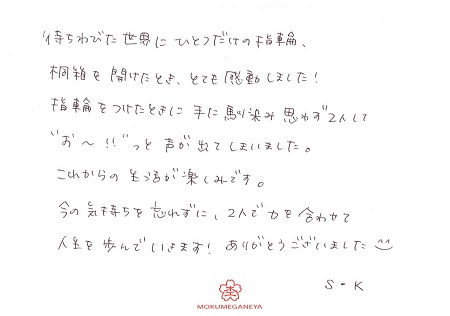 待ちわびた世界にひとつだけの指輪、
桐箱を開けたとき、とても感動しました!
指輪をつけたときに手に馴染み思わず2人して
"お〜!!"っと声が出てしまいました。
これからの生活が楽しみです。
今の気持ちを忘れずに、2人で力を合わせて
人生を歩んでいきます!ありがとうございました
S・K
MOKUMEGANEYA